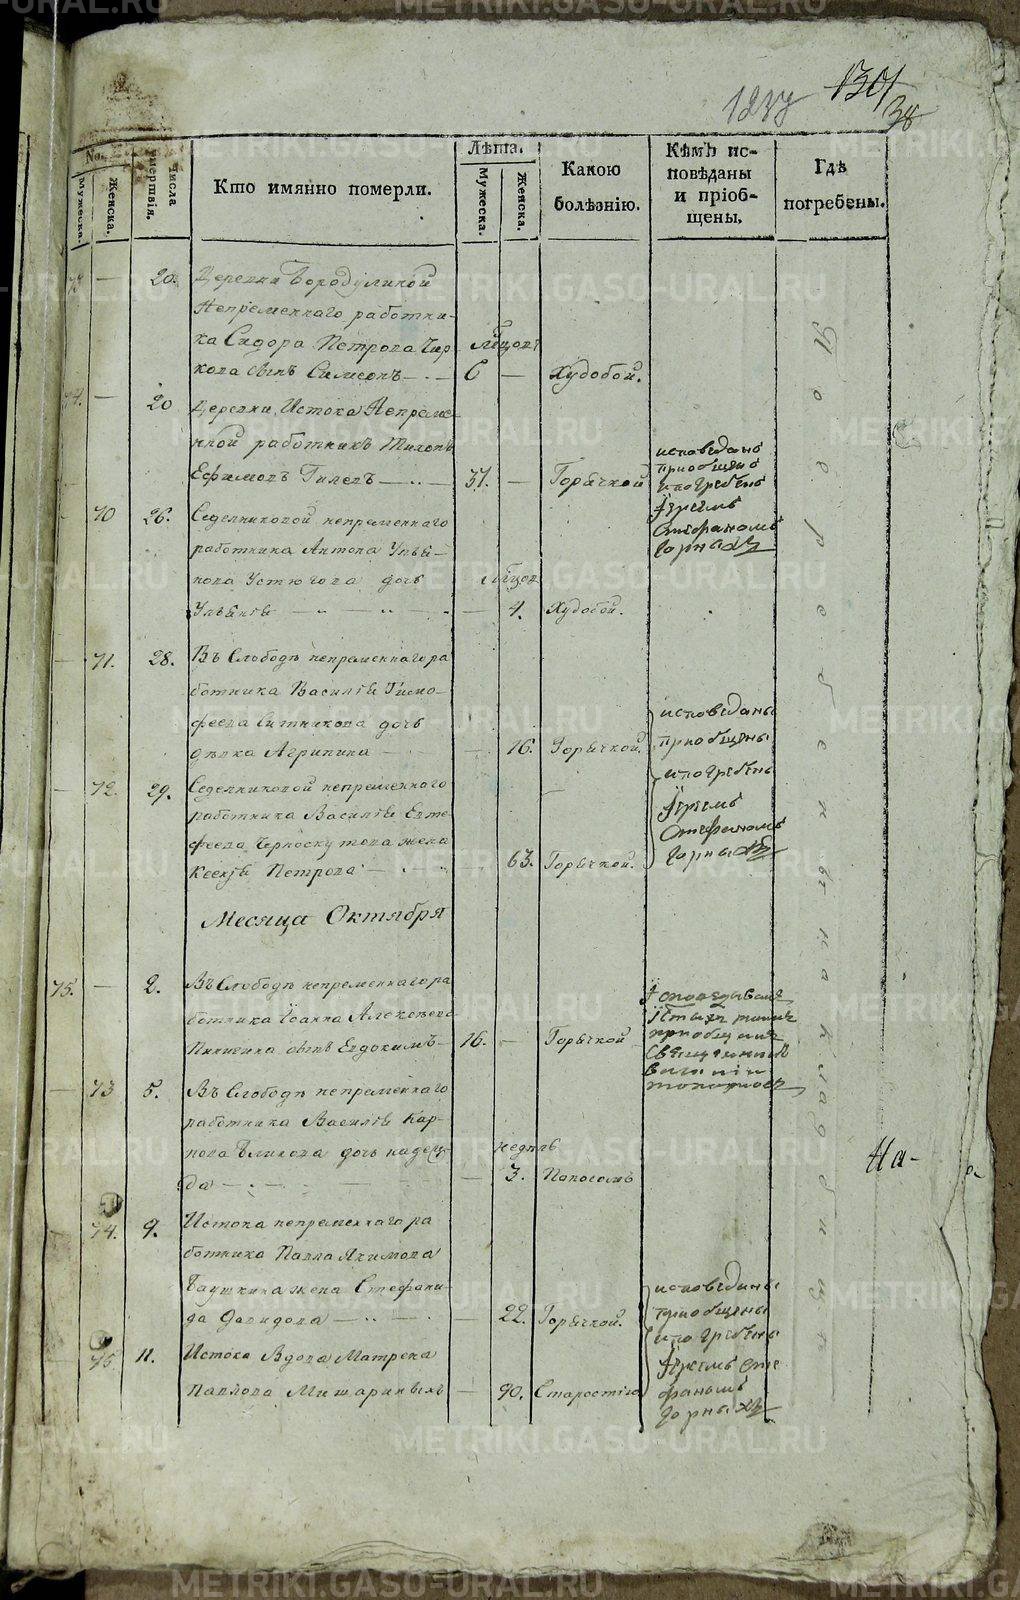 1237
1301
38
No.
Мужеска.
Женска.
Числа мертвія.
Кто имянно померли.
Лѣта.
Мужеска.
Женска.
Какою болѣзнію.
Кѣмъ исповѣданы и пріобщены.
Гдѣ погребены.
73 — 20. Деревни Бородулиной
Непременнаго работни-
ка Сидора Петрова Чир
мѣцовъ
кова сынъ Симеонъ — 6 — Худобой.
74. — 20 Деревни Истока Непреме-
нной работникъ Тихонъ
Ефимовъ Гилевъ — 37. — Горячкой
исповеданъ
приобщенъ
и погребенъ
Іереемъ
Стефаномъ
Горныхъ
— 70 26. Седелниковой непременнаго
работника Антона Улья-
нова Устюгова дочь
мѣцов
Ульянія — 4. Худобой.
— 71. 28. Въ Слободѣ непременнаго ра
ботника Василія Тимо-
феева Ситникова дочь
дѣвка Агрипина — 16. Горячкой.
исповеданы
приобщены
и погребены
Іереемъ
Стефаномъ
Горныхъ
— 72. 29. Седелниковой непременнаго
работника Василія Евте-
феева Черноскутова жена
Ксенія Петрова — 63. Горячкой.
Месяца Октября
75. — 2. Въ Слободѣ непременнаго ра
ботника Іоанна Алексѣева
сынъ Евдокимъ — 16. — Горячкой
приобщилъ
— 73 5. Въ Слободѣ непременнаго
работника Василія Кар-
пова дочь
недѣль
да — 3. Поносомъ
— 74. 9. Истока непременнаго ра
ботника Павла Якимова
Баушкина жена Стефани-
да Давидова — 22. Горячкой.
исповеданы
приобщены
и погребены
Іереемъ Сте
фаномъ
Горныхъ
— 75 11. Истока Вдова Матрена
Павлова Мишариныхъ — 90. Старостію
На
METRIKI.GASO-URAL.RU